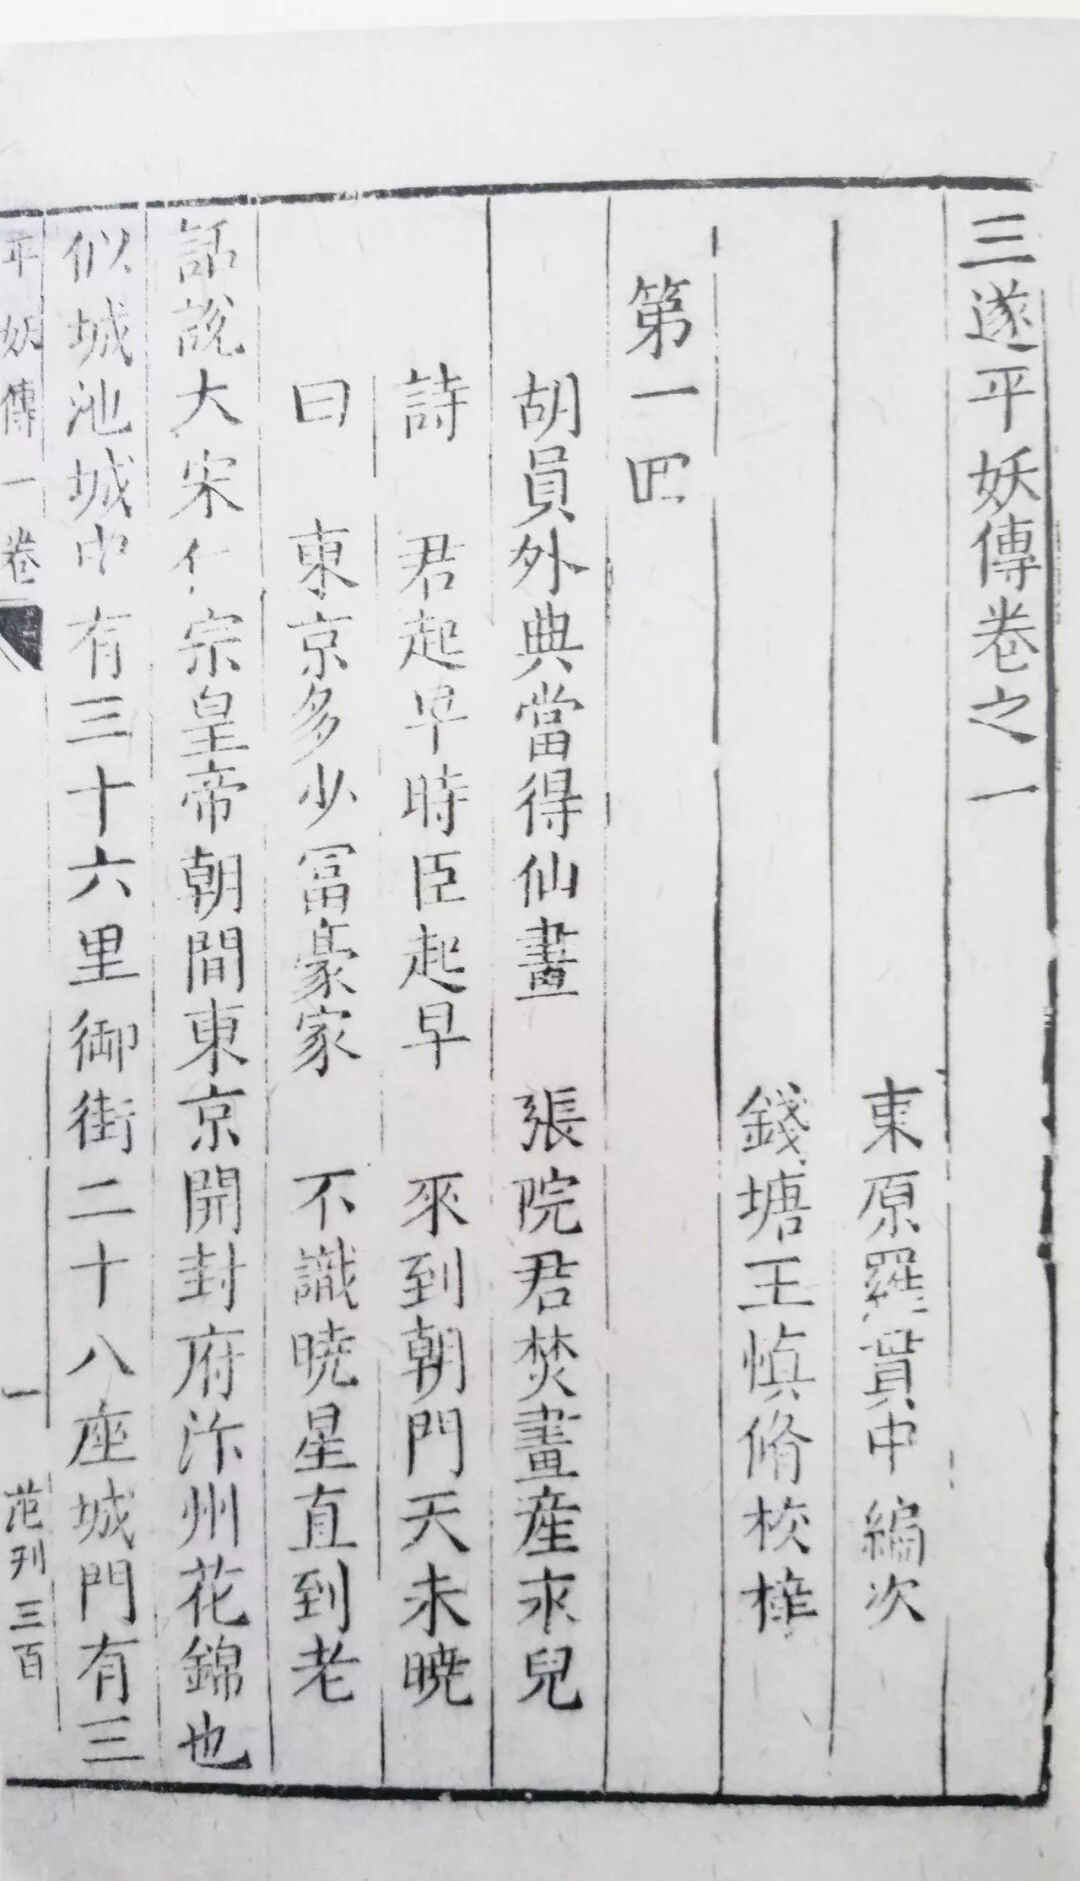 三遂平妖傳卷之一
東原羅貫中編次
錢塘王慎脩校梓
第一回
胡員外典當得仙畫　張院君焚畫產永兒
詩　君起早時臣起早　來到朝門天未曉
曰　東京多少冨豪家　不識曉星直到老
話說大宋仁宗皇帝朝間東京開封府汴州花錦也
似城池城中有三十六里御街二十八座城門有三
平妖傳一卷　一　范刊三百